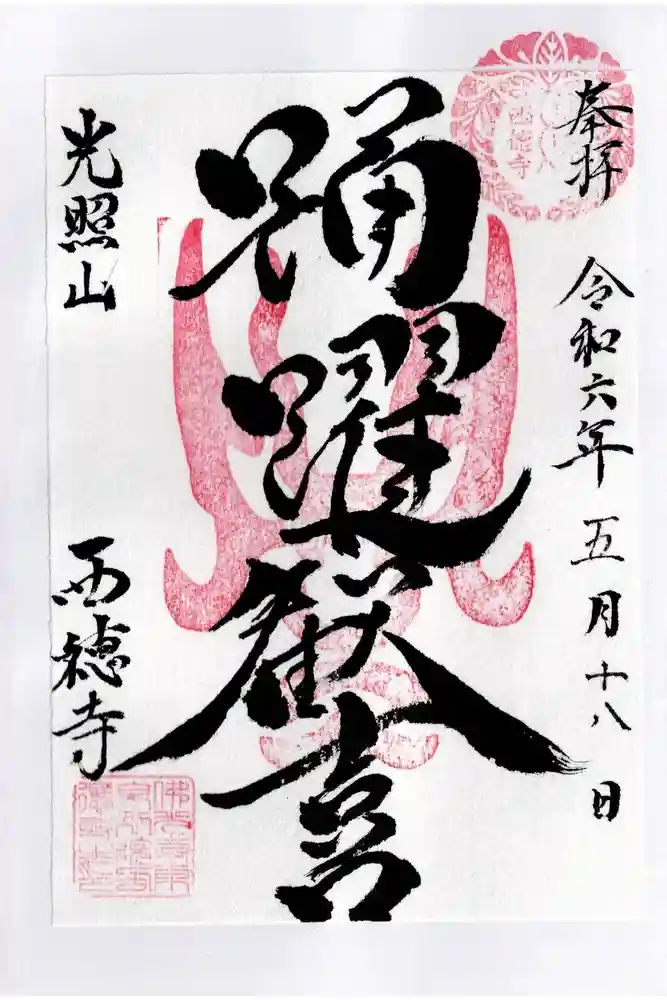 奉拝
令和六年五月十八日
踊躍歓喜
光照山
西徳寺
西徳寺